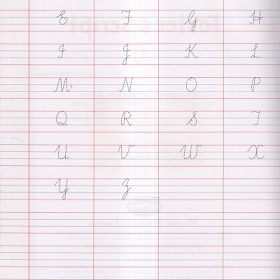 E F G H
I J K L
M N O P
Q R S T
U V W X
Y Z